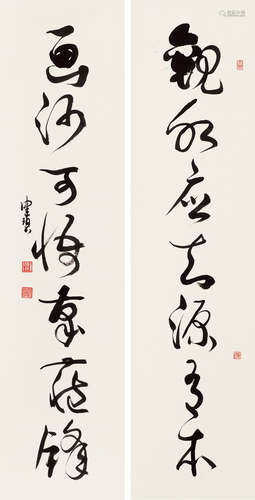 觀水应知源有本
画沙可悟筆藏鋒